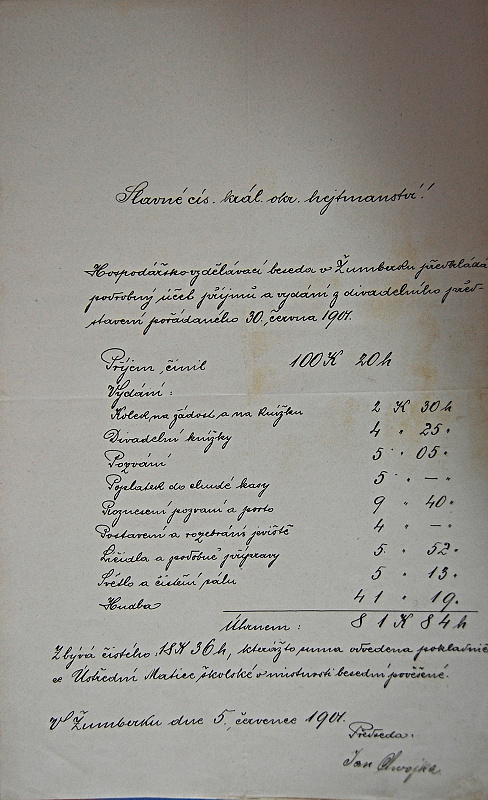 Slavné cís. král. okr. hejtmanství!
Hospodářsko vzdělávací beseda v Žumberku předkládá
podrobný účet příjmů a vydání z divadelního před-
stavení pořádaného 30. června 1901.
Příjem činil 100 K 20 h
Vydání:
Kolek na žádost a na knížku 2 K 30 h
Divadelní knížky 4 " 25 "
Pozvání 5 " 05 "
Poplatek do chudé kasy 5 " — "
Roznesení pozvaní a porto 9 " 40 "
Postavení a rozebrání jeviště 4 " — "
Líčidla a podobné přípravy 5 " 52 "
Světlo a čistění sálu 5 " 13 "
Hudba 41 " 19 "
Úhrnem: 81 K 84 h
Zbývá čistého 18 K 36 h, kterážto suma odvedena pokladnič
ce Ústřední Matice školské v místnosti besední pověšené.
V Žumberku dne 5. července 1901.
Předseda:
Jan Chvojka